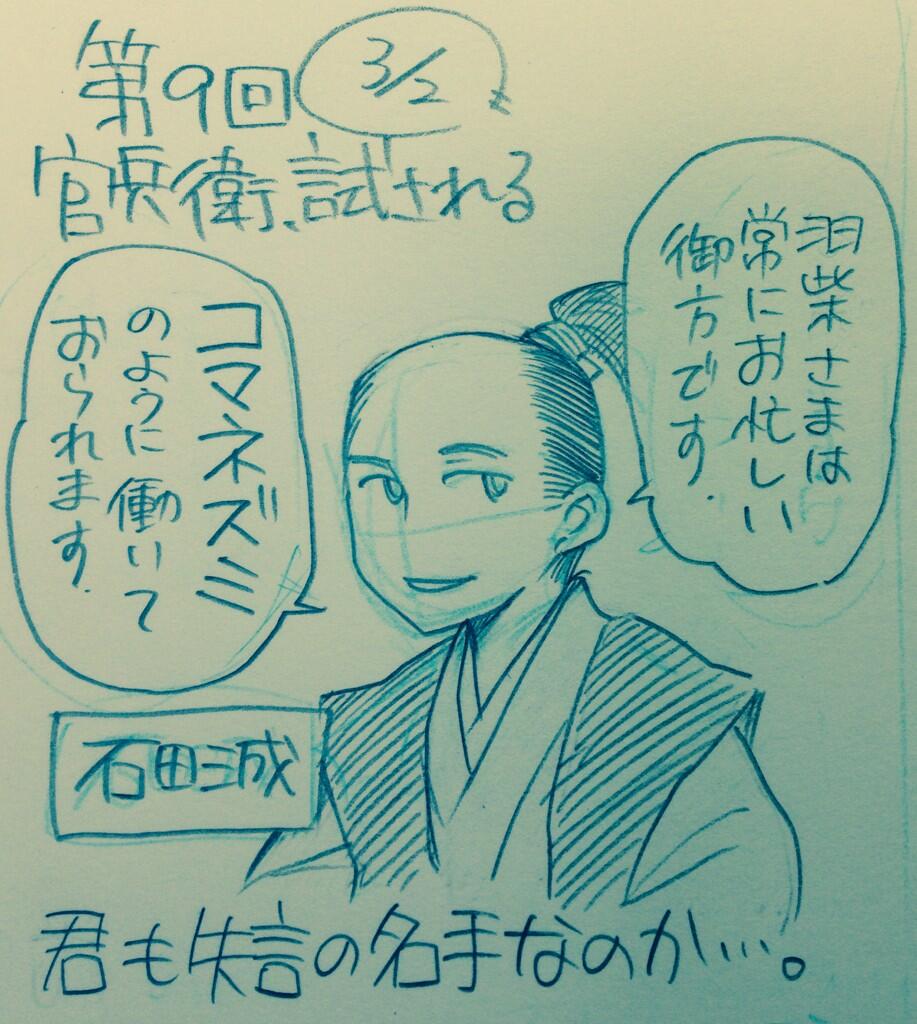 第9回 3/2
官兵衛、試される
羽柴さまは
常にお忙しい
御方です.
コマネズミ
のように働いて
おられます.
石田三成
君も失言の名手なのか…。